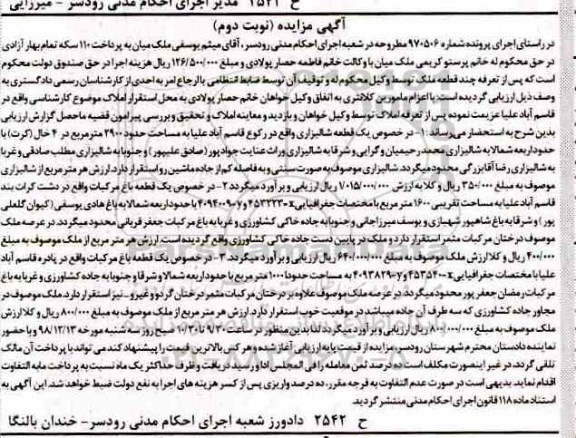 ح ۲۵۴۱ مدیر اجرای احکام مدنی رودسر - میرزایی
آگهی مزایده (نوبت دوم)
در راستای اجرای پرونده شماره ۹۷۰۵۰۶ مطروحه در شعبه اجرای احکام مدنی رودسر، آقای میثم یوسفی ملک میان به پرداخت ۱۱۰ سکه تمام بهار آزادی
در حق محکوم له خانم پرستو کریمی ملک میان با وکالت خانم فاطمه حصار پولادی و مبلغ ۱۲۶/۵۰۰/۰۰۰ ریال هزینه اجرا در حق صندوق دولت محکوم
است که پس از تعرفه چند قطعه ملک توسط وکیل محکوم له و توقیف آن توسط ضابط انتظامی با ارجاع امر به احدی از کارشناسان رسمی دادگستری به
وصف ذیل ارزیابی گردیده است. با اعزام مامورین کلانتری به اتفاق وکیل خواهان خانم حصار پولادی به محل استقرار املاک موضوع کارشناسی واقع در
قاسم آباد علیا عزیمت نموده پس از تعرفه املاک توسط وکیل خواهان و بازدید و معاینه املاک و تحقیق و بررسی پیرامون قضیه ماحصل گزارش ارزیابی
بدین شرح به استحضار می رساند: ۱- در خصوص یک قطعه شالیزاری واقع در رکوع قاسم آباد علیا به مساحت حدود ۲۹۰۰ مترمربع در ۴ خال (کرت) با
حدود اربعه شمالا به شالیزاری محمد رحیمیان و گرایی و شرقا به شالیزاری وراث عنایت جوادپور (صادق علیپور) و جنوبا به شالیزاری مطلب صادقی و غربا
به شالیزاری رضا آقابزرگی محدود میگردد. شالیزاری موصوف به صورت سنتی و به فاصله کم از جاده ماشین رو استقرار دارد. ارزش هر متر مربع از شالیزاری
موصوف به مبلغ ۳۵۰/۰۰۰ ریال و کلا به ارزش ۱/۰۱۵/۰۰۰/۰۰۰ ریال ارزیابی و برآورد میگردد ۲- در خصوص یک قطعه باغ مرکبات واقع در دشت کرات بند
قاسم آباد علیا به مساحت تقریبی ۱۶۰۰ متر مربع با مختصات جغرافیایی x=۴۵۳۲۲۳ و y=۴۰۹۴۰۰۹ با حدود اربعه شمالا به باغ هادی یوسفی (کیوان گلعلی
پور) و شرقا به باغ شاهپور شهبازی و یوسف میرزاجانی و جنوبا به جاده خاکی کشاورزی و غربا به باغ مرکبات جعفر قربانی محدود میگردد. در عرصه ملک
موصوف درختان مرکبات مثمر استقرار دارد و ملک در پایین دست جاده خاکی کشاورزی واقع گردیده است. ارزش هر متر مربع از ملک موصوف به مبلغ
۴۰۰/۰۰۰ ریال و کلا ارزش ملک موصوف به مبلغ ۶۴۰/۰۰۰/۰۰۰ ریال ارزیابی و برآورد میگردد. ۳- در خصوص یک قطعه باغ مرکبات واقع در پادره قاسم آباد
علیا با مختصات جغرافیایی x=۴۵۳۵۴۰۰ و y=۴۰۹۳۸۲۹ به مساحت حدودا ۱۰۰۰ متر مربع با حدود اربعه شمالا و شرقا و جنوبا به جاده کشاورزی و غربا به باغ
مرکبات رمضان جعفر پور محدود میگردد. در عرصه ملک موصوف علاوه بر درختان مرکبات مثمر درختان گردو و غیرو... نیز استقرار دارد. ملک موصوف در
مجاور جاده کشاورزی که سه طرف آن جاده میباشد در موقعیت خوب استقرار دارد. ارزش هر متر مربع از ملک موصوف به مبلغ ۸۰۰/۰۰۰ ریال و کلا ارزش
ملک موصوف به مبلغ ۸۰۰/۰۰۰/۰۰۰ ریال ارزیابی و برآورد میگردد لذا بدین منظور در ساعت ۹/۳۰ تا ۱۰/۳۰ صبح روز سه شنبه مورخه ۹۸/۱۲/۱۳ و با حضور
نماینده دادستان محترم شهرستان رودسر، مزایده از قیمت پایه ارزیابی آغاز شده و هر کس بالاترین قیمت را پیشنهاد کند می تواند با پرداخت آن مالک
تلقی گردد. در غیر اینصورت مکلف است ده درصد ثمن معامله را فی المجلس ادا و رسید دریافت و ظرف حداکثر یک ماه نسبت به پرداخت مابه التفاوت
اقدام نماید. بدیهی است در صورت عدم التفاوت به فرجه مقرر، ده درصد واریزی پس از کسر هزینه های اجرا به نفع دولت ضبط خواهد شد. این آگهی به
استناد ماده ۱۱۸ قانون اجرای احکام مدنی منتشر گردید.
ح ۲۵۴۲ دادورز شعبه اجرای احکام مدنی رودسر - خندان بالنگا